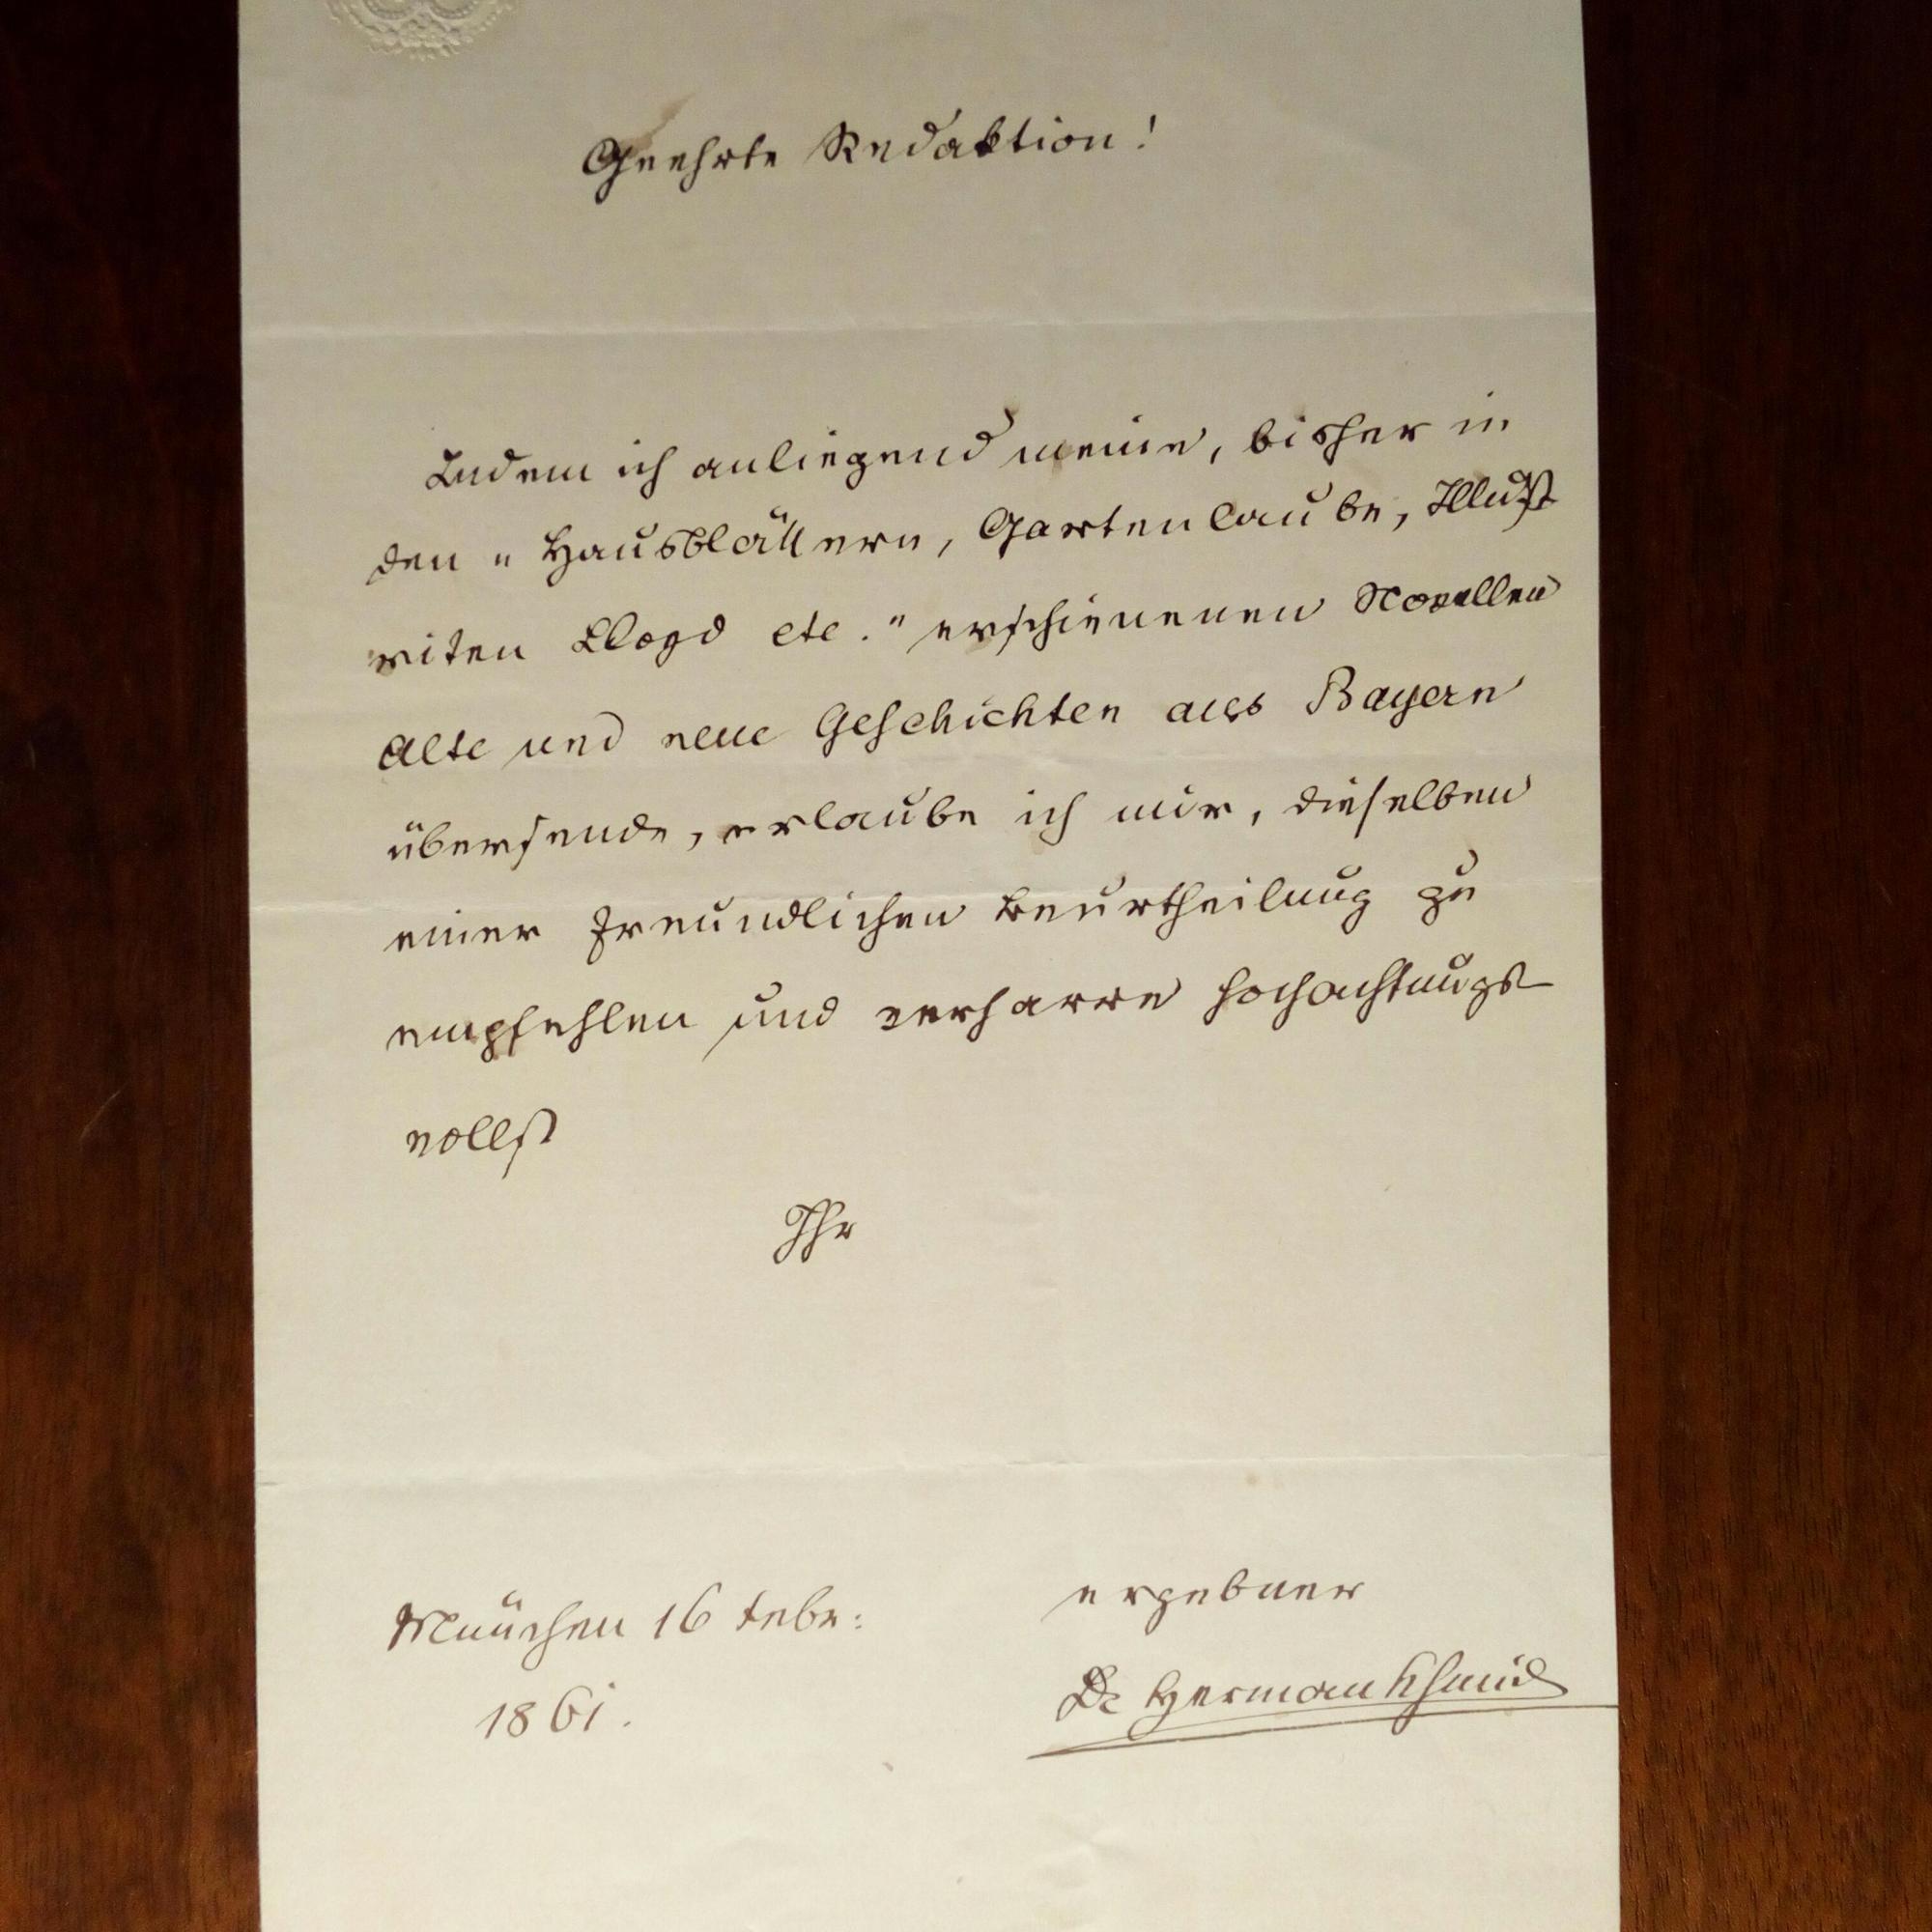 Geehrte Redaktion!
Indem ich anliegend meine, bisher in
den „Hausblättern, Gartenlaube, Illust
rirten Lloyd etc." erschienenen Novellen
Alte und neue Geschichten aus Bayern
übersende, erlaube ich mir, dieselben
einer freundlichen Beurtheilung zu
empfehlen und verharre hochachtungs
vollst
Ihr
ergebner
München 16 Febr:
1861.
Dr Herman Schmid